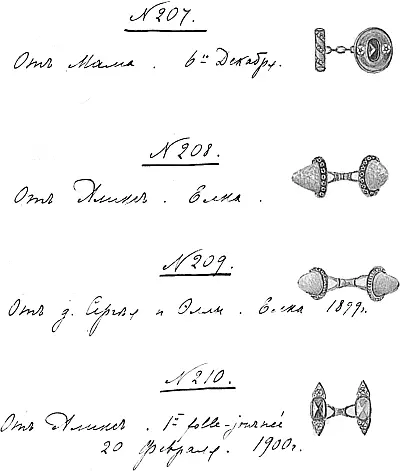 N 207.
Отъ Мама. 6го Декабря.
N 208.
Отъ Аликсъ. Елка.
N 209.
Отъ д. Сергѣя и Эллы. Елка 1899г.
N 210.
Отъ Аликсъ. 1re folle-journée
20 Февраля. 1900г.